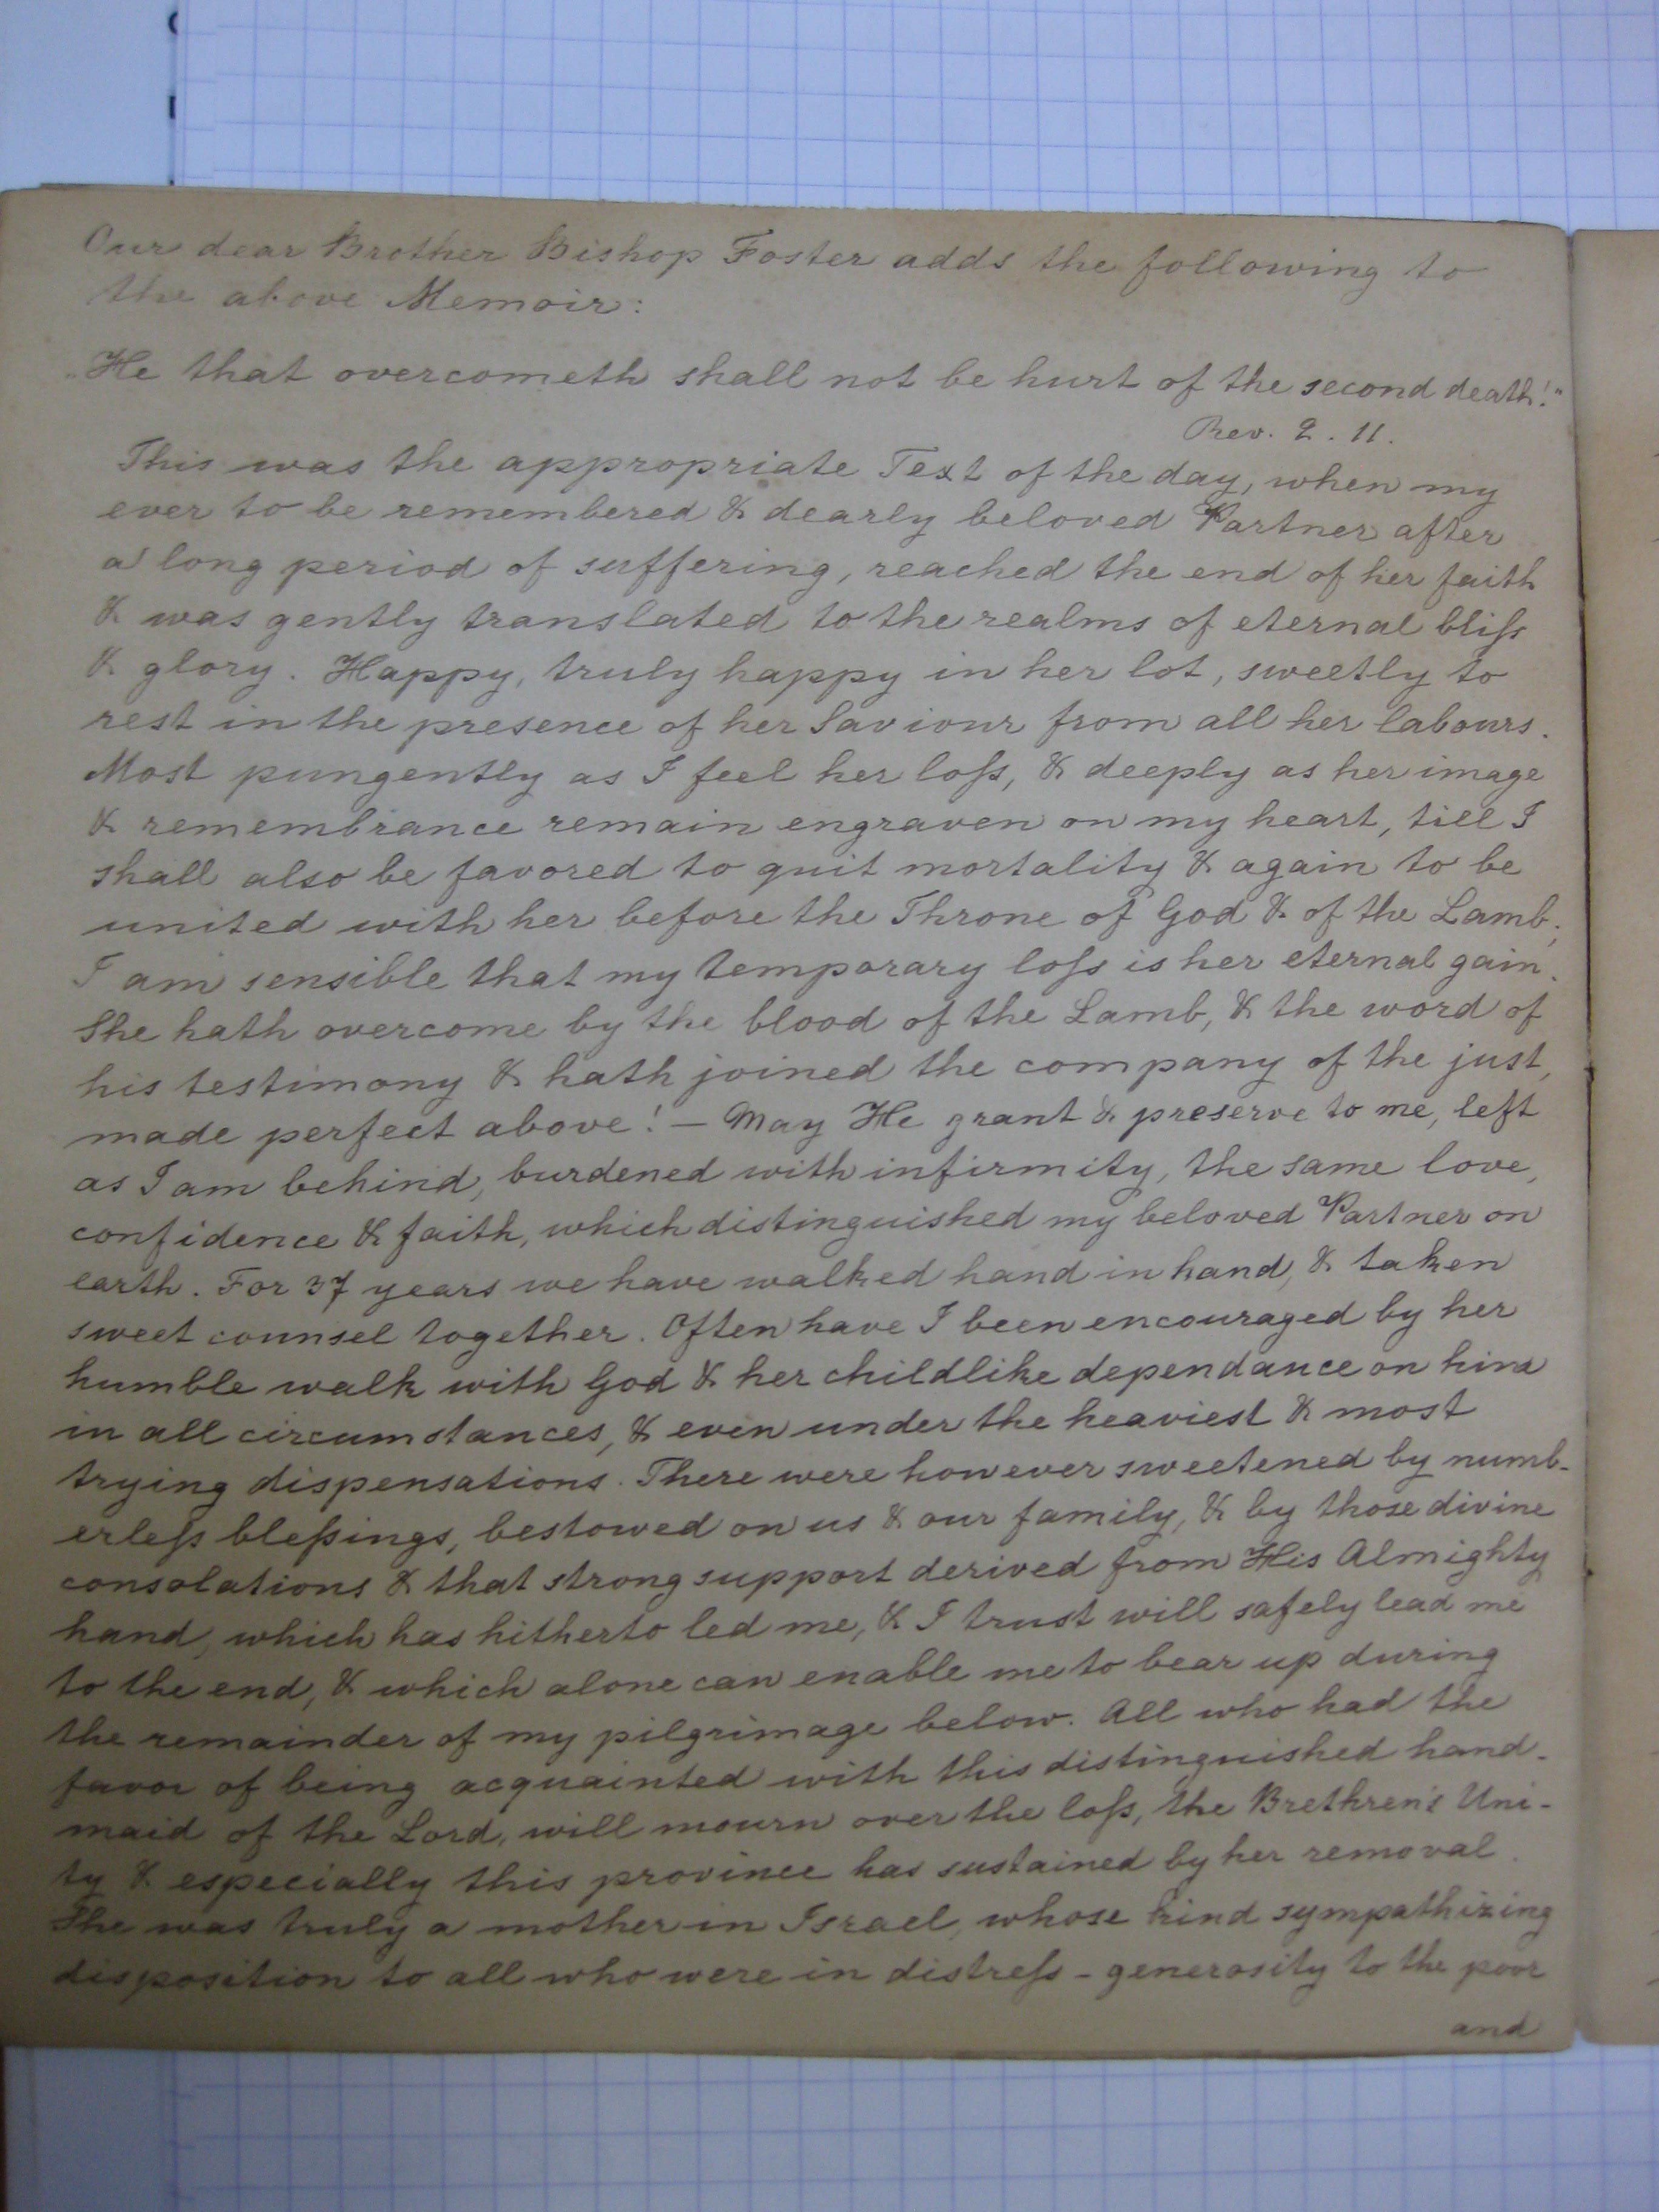 Our dear Brother Bishop Foster adds the following to
the above Memoir:
„He that overcometh shall not be hurt of the second death!"
Rev. 2. 11.
This was the appropriate Text of the day, when my
ever to be remembered & dearly beloved Partner after
a long period of suffering, reached the end of her faith
& was gently translated to the realms of eternal bliſs
& glory. Happy, truly happy in her lot, sweetly to
rest in the presence of her Saviour from all her labours.
Most pungently as I feel her loſs, & deeply as her image
& remembrance remain engraven on my heart, till I
shall also be favored to quit mortality & again to be
united with her before the Throne of God & of the Lamb;
I am sensible that my temporary loſs is her eternal gain.
She hath overcome by the blood of the Lamb, & the word of
his testimony & hath joined the company of the just,
made perfect above! – May He grant & preserve to me, left
as I am behind, burdened with infirmity, the same love,
confidence & faith, which distinguished my beloved Partner on
earth. For 37 years we have walked hand in hand, & taken
sweet counsel together. Often have I been encouraged by her
humble walk with God & her childlike dependance on him
in all circumstances, & even under the heaviest & most
trying dispensations. There were however sweetened by numb-
erleſs bleſsings, bestowed on us & our family, & by those divine
consolations & that strong support derived from His Almighty
hand, which has hitherto led me, & I trust will safely lead me
to the end, & which alone can enable me to bear up during
the remainder of my pilgrimage below. All who had the
favor of being acquainted with this distinguished hand-
maid of the Lord, will mourn over the loſs, the Brethren's Uni-
ty & especially this province has sustained by her removal.
She was truly a mother in Israel, whose kind sympathizing
disposition to all who were in distreſs – generosity to the poor
and